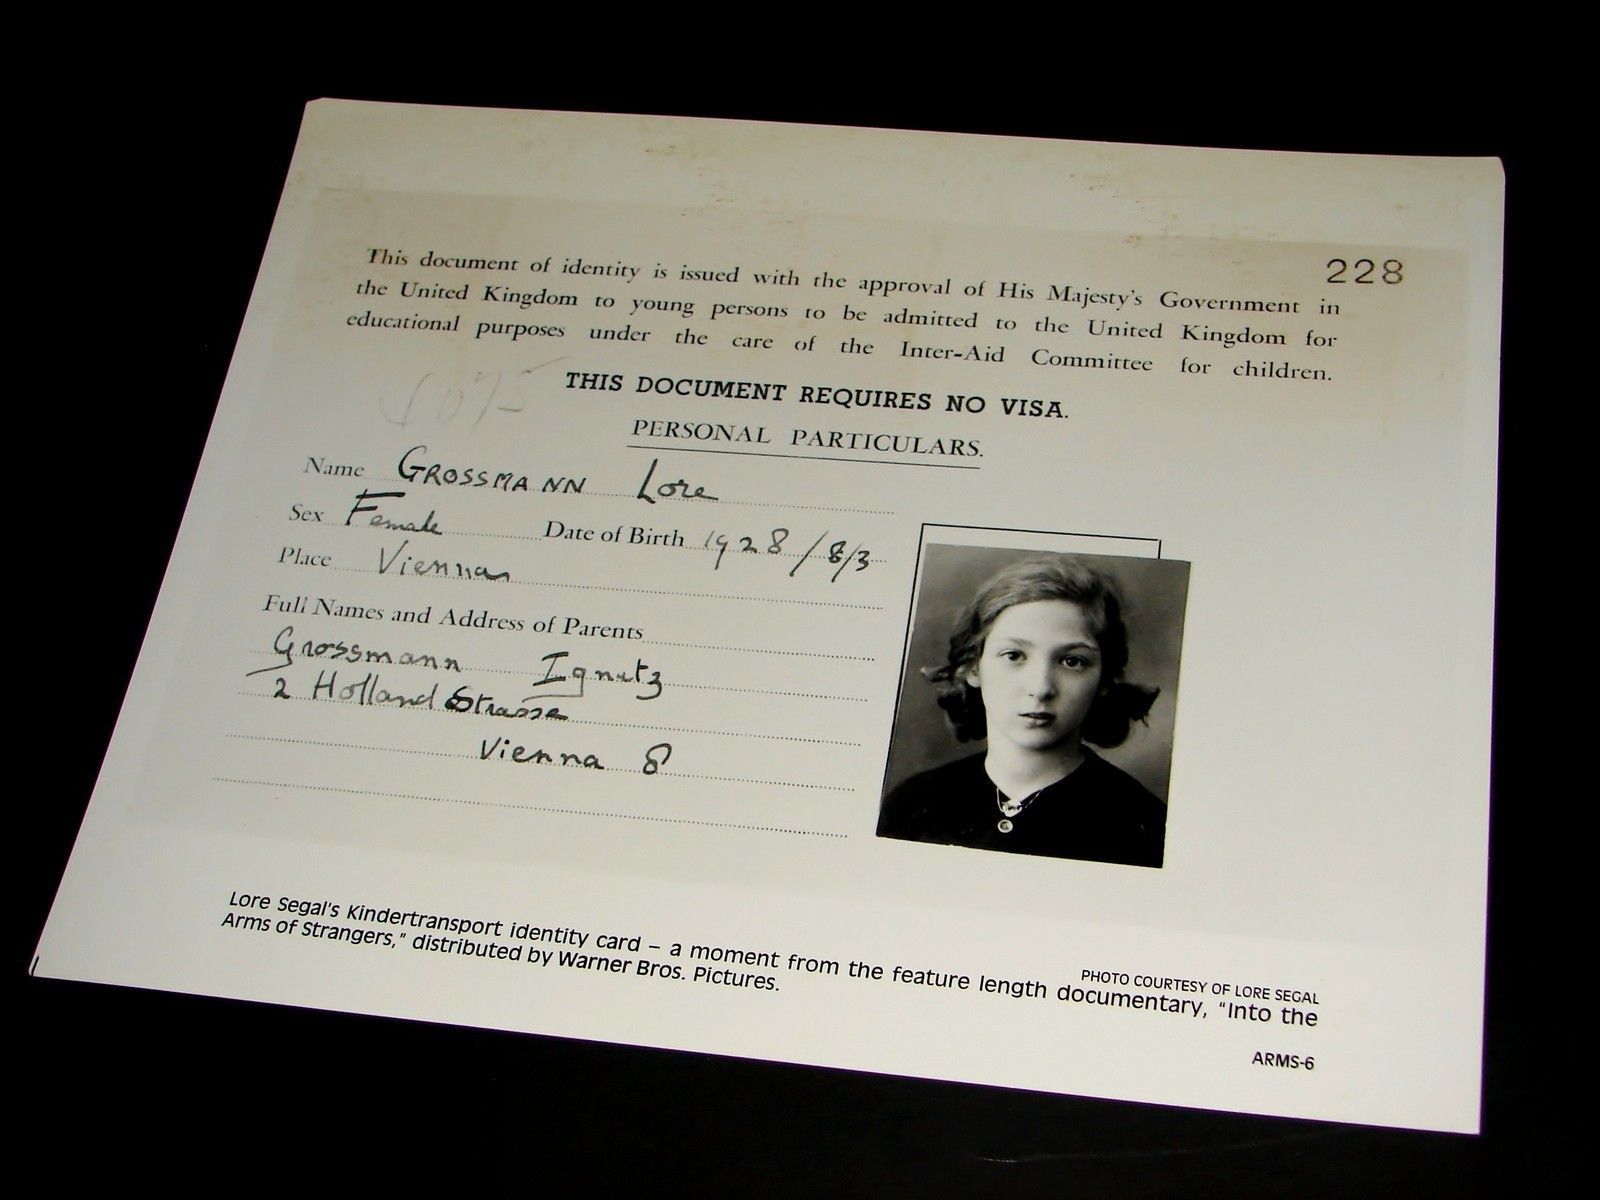 228
This document of identity is issued with the approval of His Majesty's Government in
the United Kingdom to young persons to be admitted to the United Kingdom for
educational purposes under the care of the Inter-Aid Committee for children.
THIS DOCUMENT REQUIRES NO VISA.
PERSONAL PARTICULARS.
Name GROSSMANN Lore
Sex Female Date of Birth 1928/8/3
Place Vienna
Full Names and Address of Parents
Grossmann Ignatz
2 Holland Strasse
Vienna 8
PHOTO COURTESY OF LORE SEGAL
Lore Segal's Kindertransport identity card – a moment from the feature length documentary, "Into the
Arms of Strangers," distributed by Warner Bros. Pictures.
ARMS-6